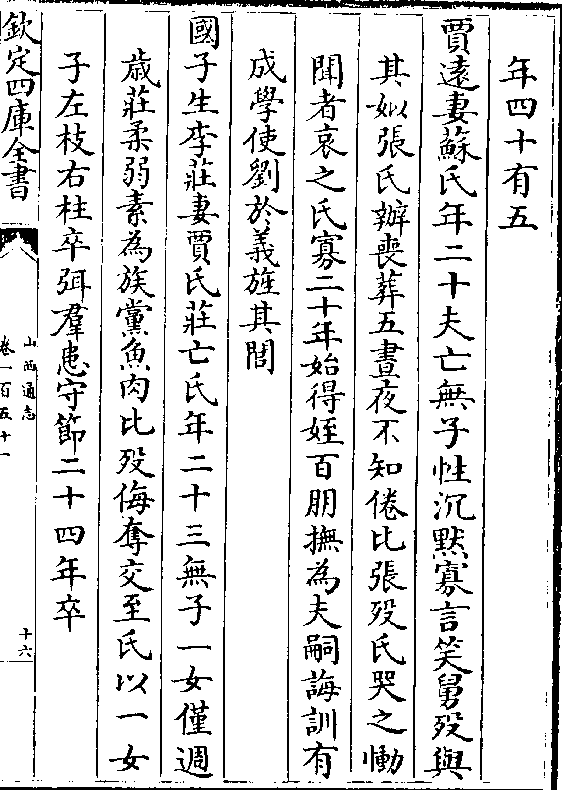 年四十有五
賈遠妻蘇氏年二十夫亡無子性沉默寡言笑舅殁與
其姒張氏辦喪葬五晝夜不知倦比張殁氏哭之慟
聞者哀之氏寡二十年始得姪百朋撫為夫嗣誨訓有
成學使劉於義旌其閭
國子生李莊妻賈氏莊亡氏年二十三無子一女僅週
歲莊柔弱素為族黨魚肉比殁侮奪交至氏以一女
子左枝右柱卒弭羣患守節二十四年卒
欽定四庫全書
山西通志
卷一百五十一
十六